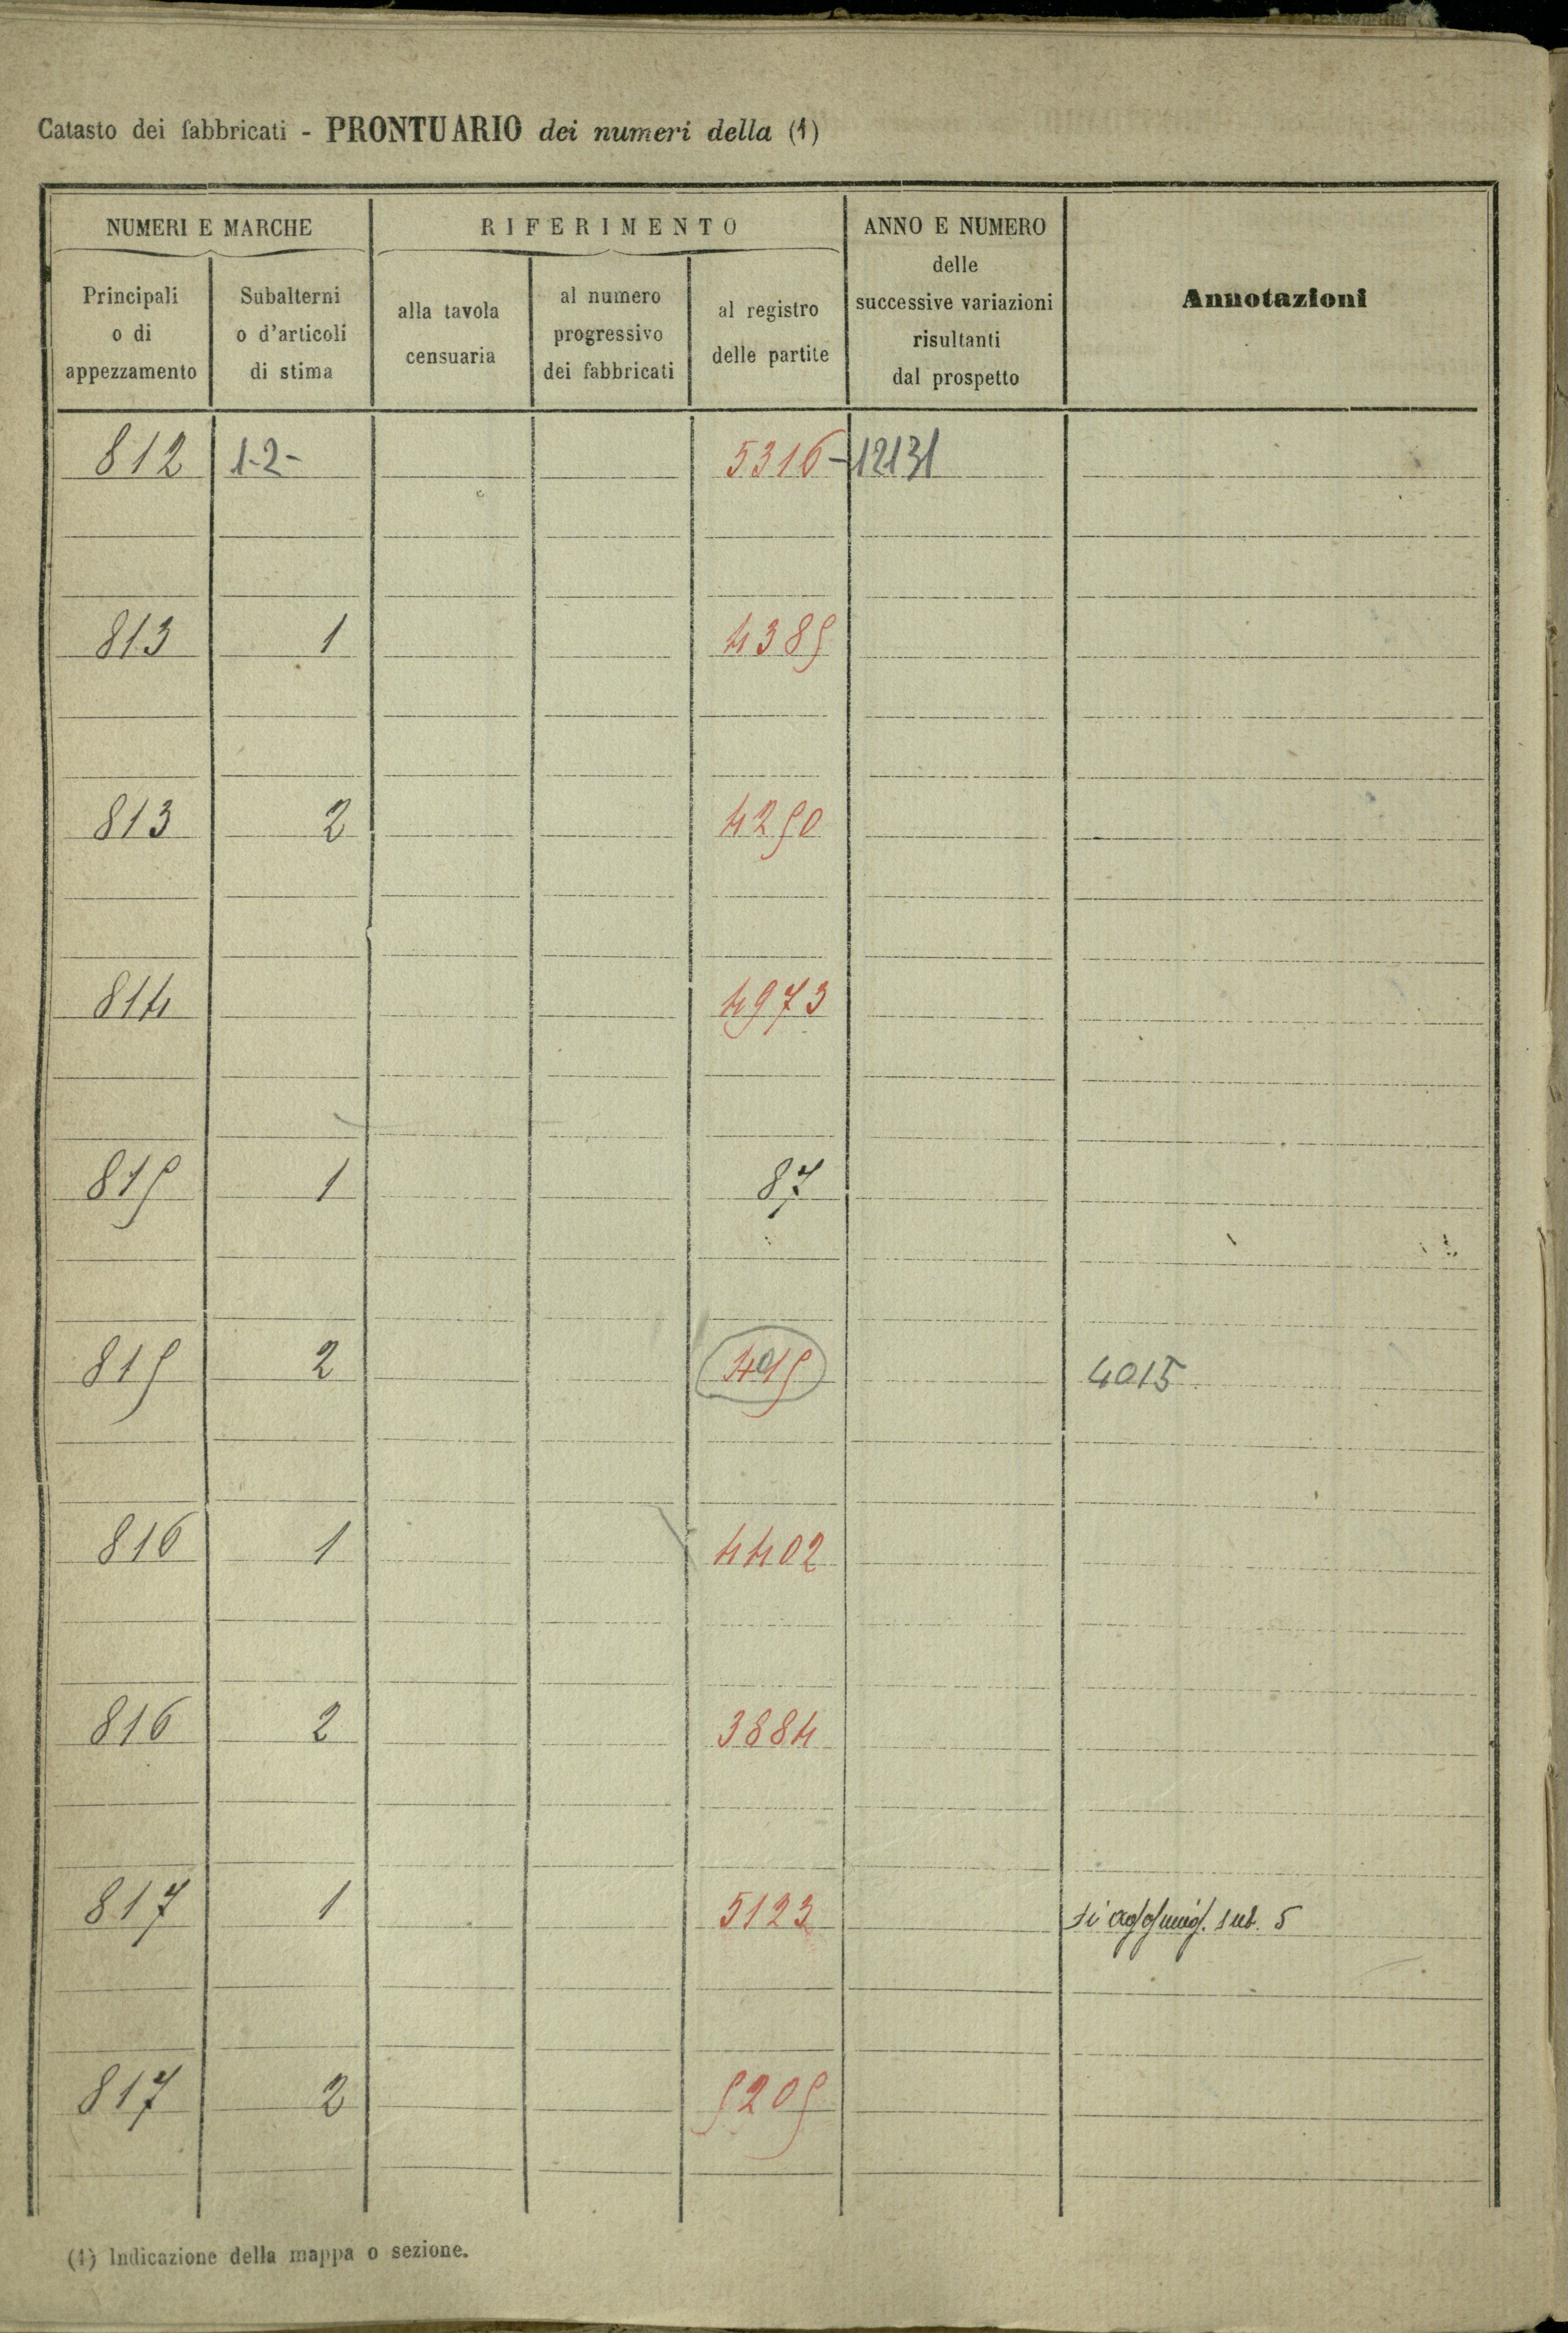 Catasto dei fabbricati - PRONTUARIO dei numeri della (1)
NUMERI E MARCHE
RIFERIMENTO
ANNO E NUMERO
delle
successive variazioni
risultanti
dal prospetto
Annotazioni
Principali
o di
appezzamento
Subalterni
o d'articoli
di stima
alla tavola
censuaria
al numero
progressivo
dei fabbricati
al registro
delle partite
812 1-2- 5316 - 12131
813 1 4385
813 2 4250
814 4973
815 1 87
815 2 4015 4015
816 1 4402
816 2 3884
817 1 5123 si aggiung. sub. 5
817 2 5205
(1) Indicazione della mappa o sezione.